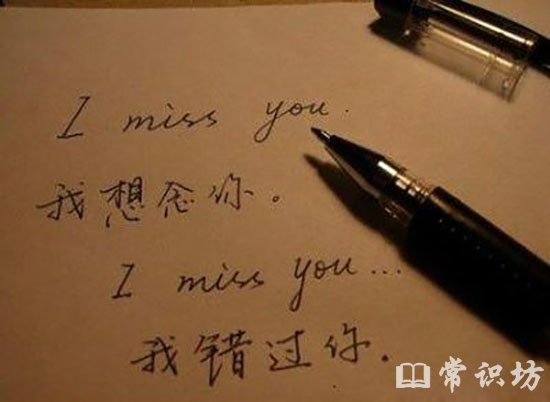 I miss you.
我想念你。
I miss you...
我错过你。
常识坊